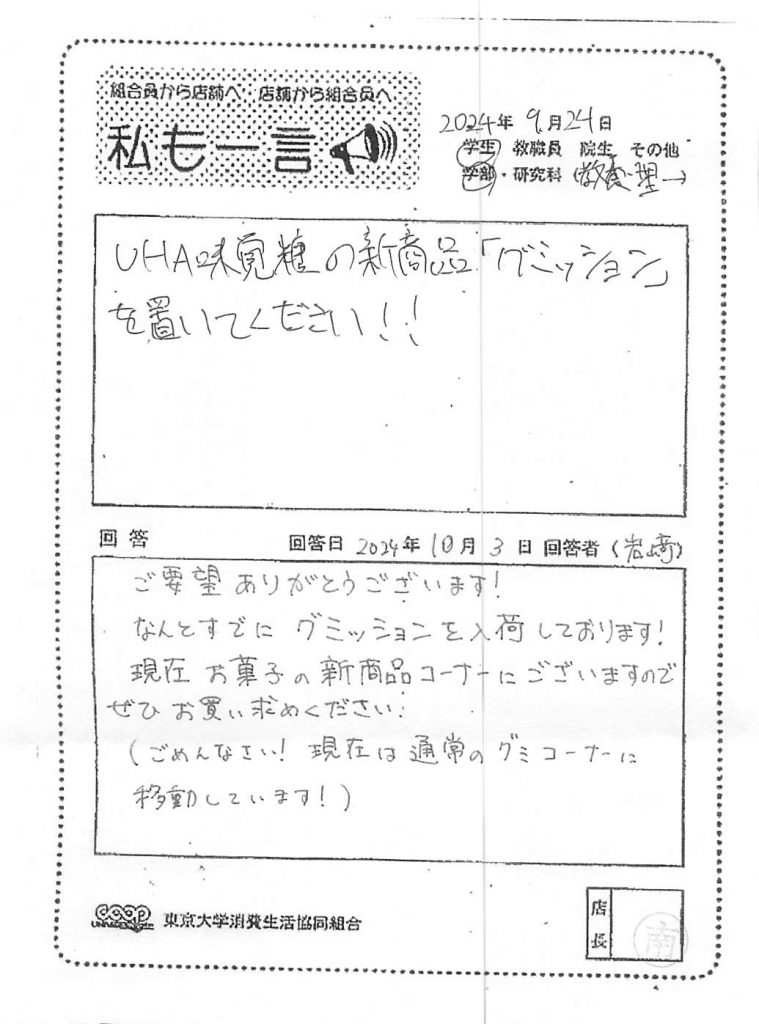 組合員から店舗へ 店舗から組合員へ
私も一言
2024年 9月24日
学生 教職員 院生 その他
学部・研究科 (教養・理一)
UHA味覚糖の新商品「グミッション」
を置いてください!!
回答 回答日 2024年 10月 3日 回答者 (岩崎)
ご要望ありがとうございます!
なんとすでに グミッションを入荷しております!
現在 お菓子の新商品コーナーにございますので
ぜひ お買い求めください.
(ごめんなさい! 現在は通常のグミコーナーに
移動しています!)
coop
東京大学消費生活協同組合
店長
南